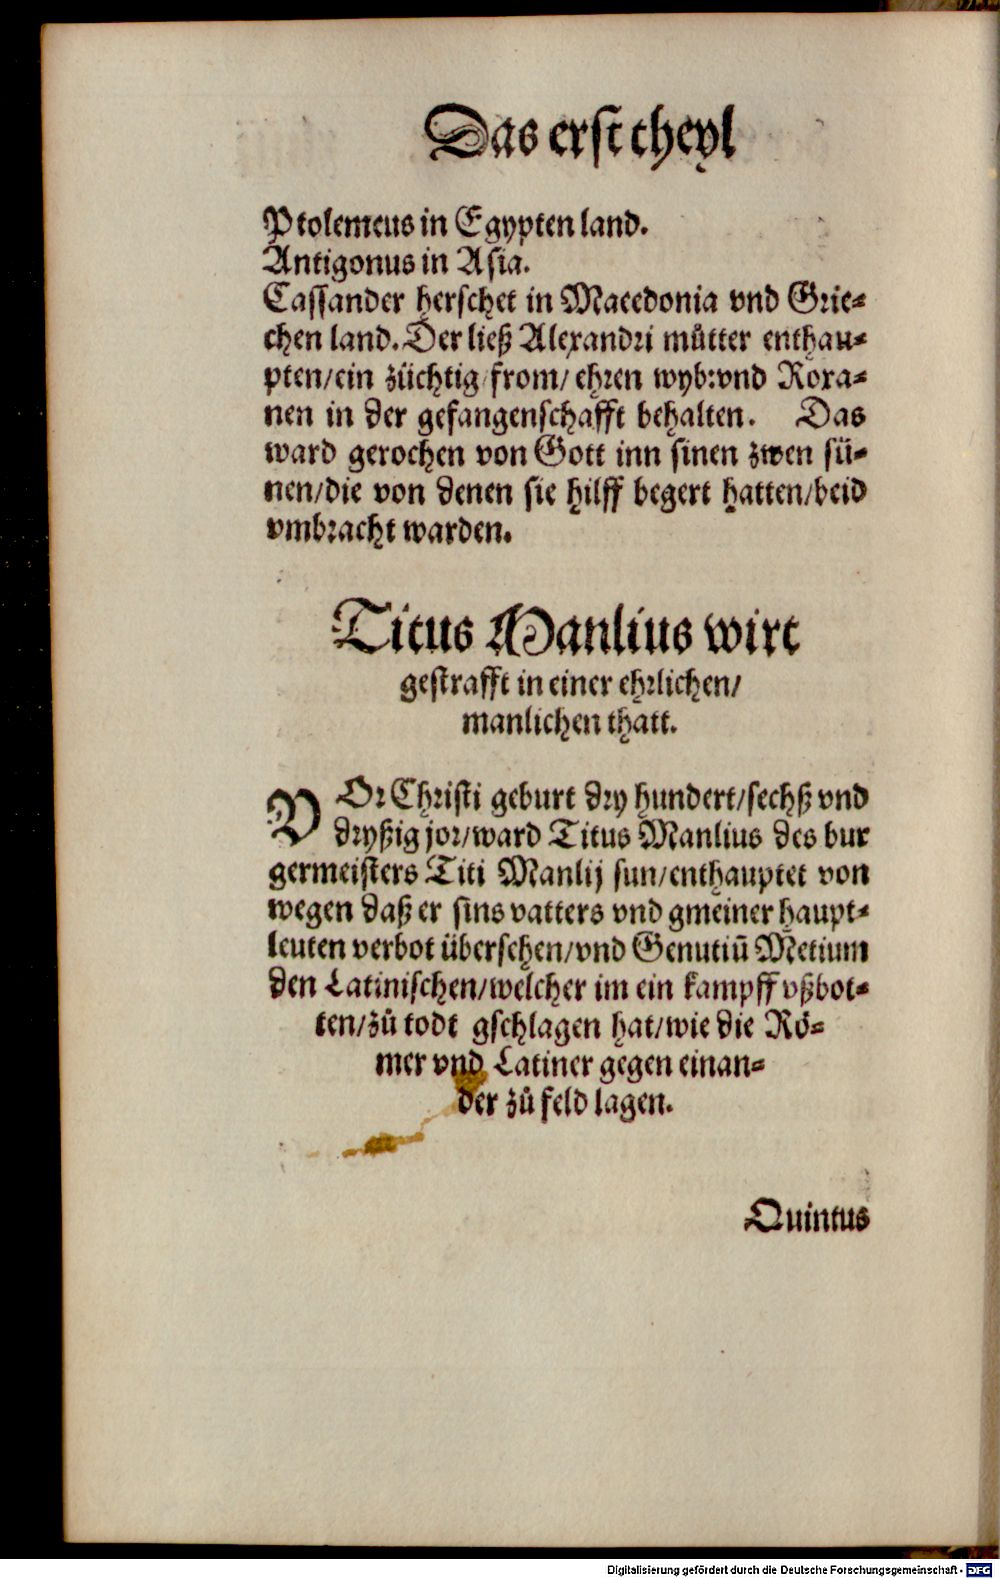 Das erst theyl
Ptolemeus in Egypten land.
Antigonus in Asia.
Cassander herschet in Macedonia vnd Grie=
chen land. Der ließ Alexandri můtter enthau=
pten/ein züchtig/from/ehren wyb:vnd Roxa=
nen in der gefangenschafft behalten. Das
ward gerochen von Gott inn sinen zwen sü=
nen/die von denen sie hilff begert hatten/beid
vmbracht warden.
Titus Manlius wirt
gestrafft in einer ehrlichen/
manlichen thatt.
VOr Christi geburt dry hundert/sechß vnd
dryßig jor/ward Titus Manlius des bur
germeisters Titi Manlij sun/enthauptet von
wegen daß er sins vatters vnd gmeiner haupt=
leuten verbot übersehen/vnd Genutiū Metium
den Latinischen/welcher im ein kampff vßbot=
ten/zů todt gschlagen hat/wie die Rö=
mer vnd Latiner gegen einan=
der zů feld lagen.
Quintus
Digitalisierung gefördert durch die Deutsche Forschungsgemeinschaft - DFG